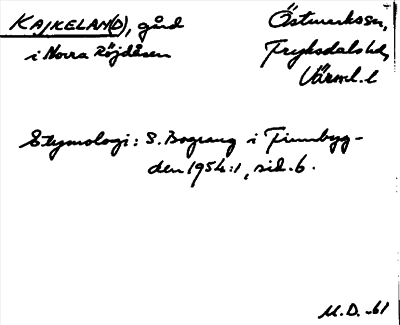 KAJKELAN(D), gård
i Norra Röjdåsen
Östmarks sn,
Fryksdals hd,
Värml. l
Etymologi: S. Bograng i Finnbyg-
den 1954:1, sid. 6.
M.D. -61